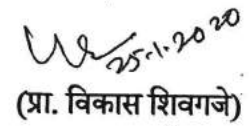 25.1.2020
(प्रा. विकास शिवगजे)